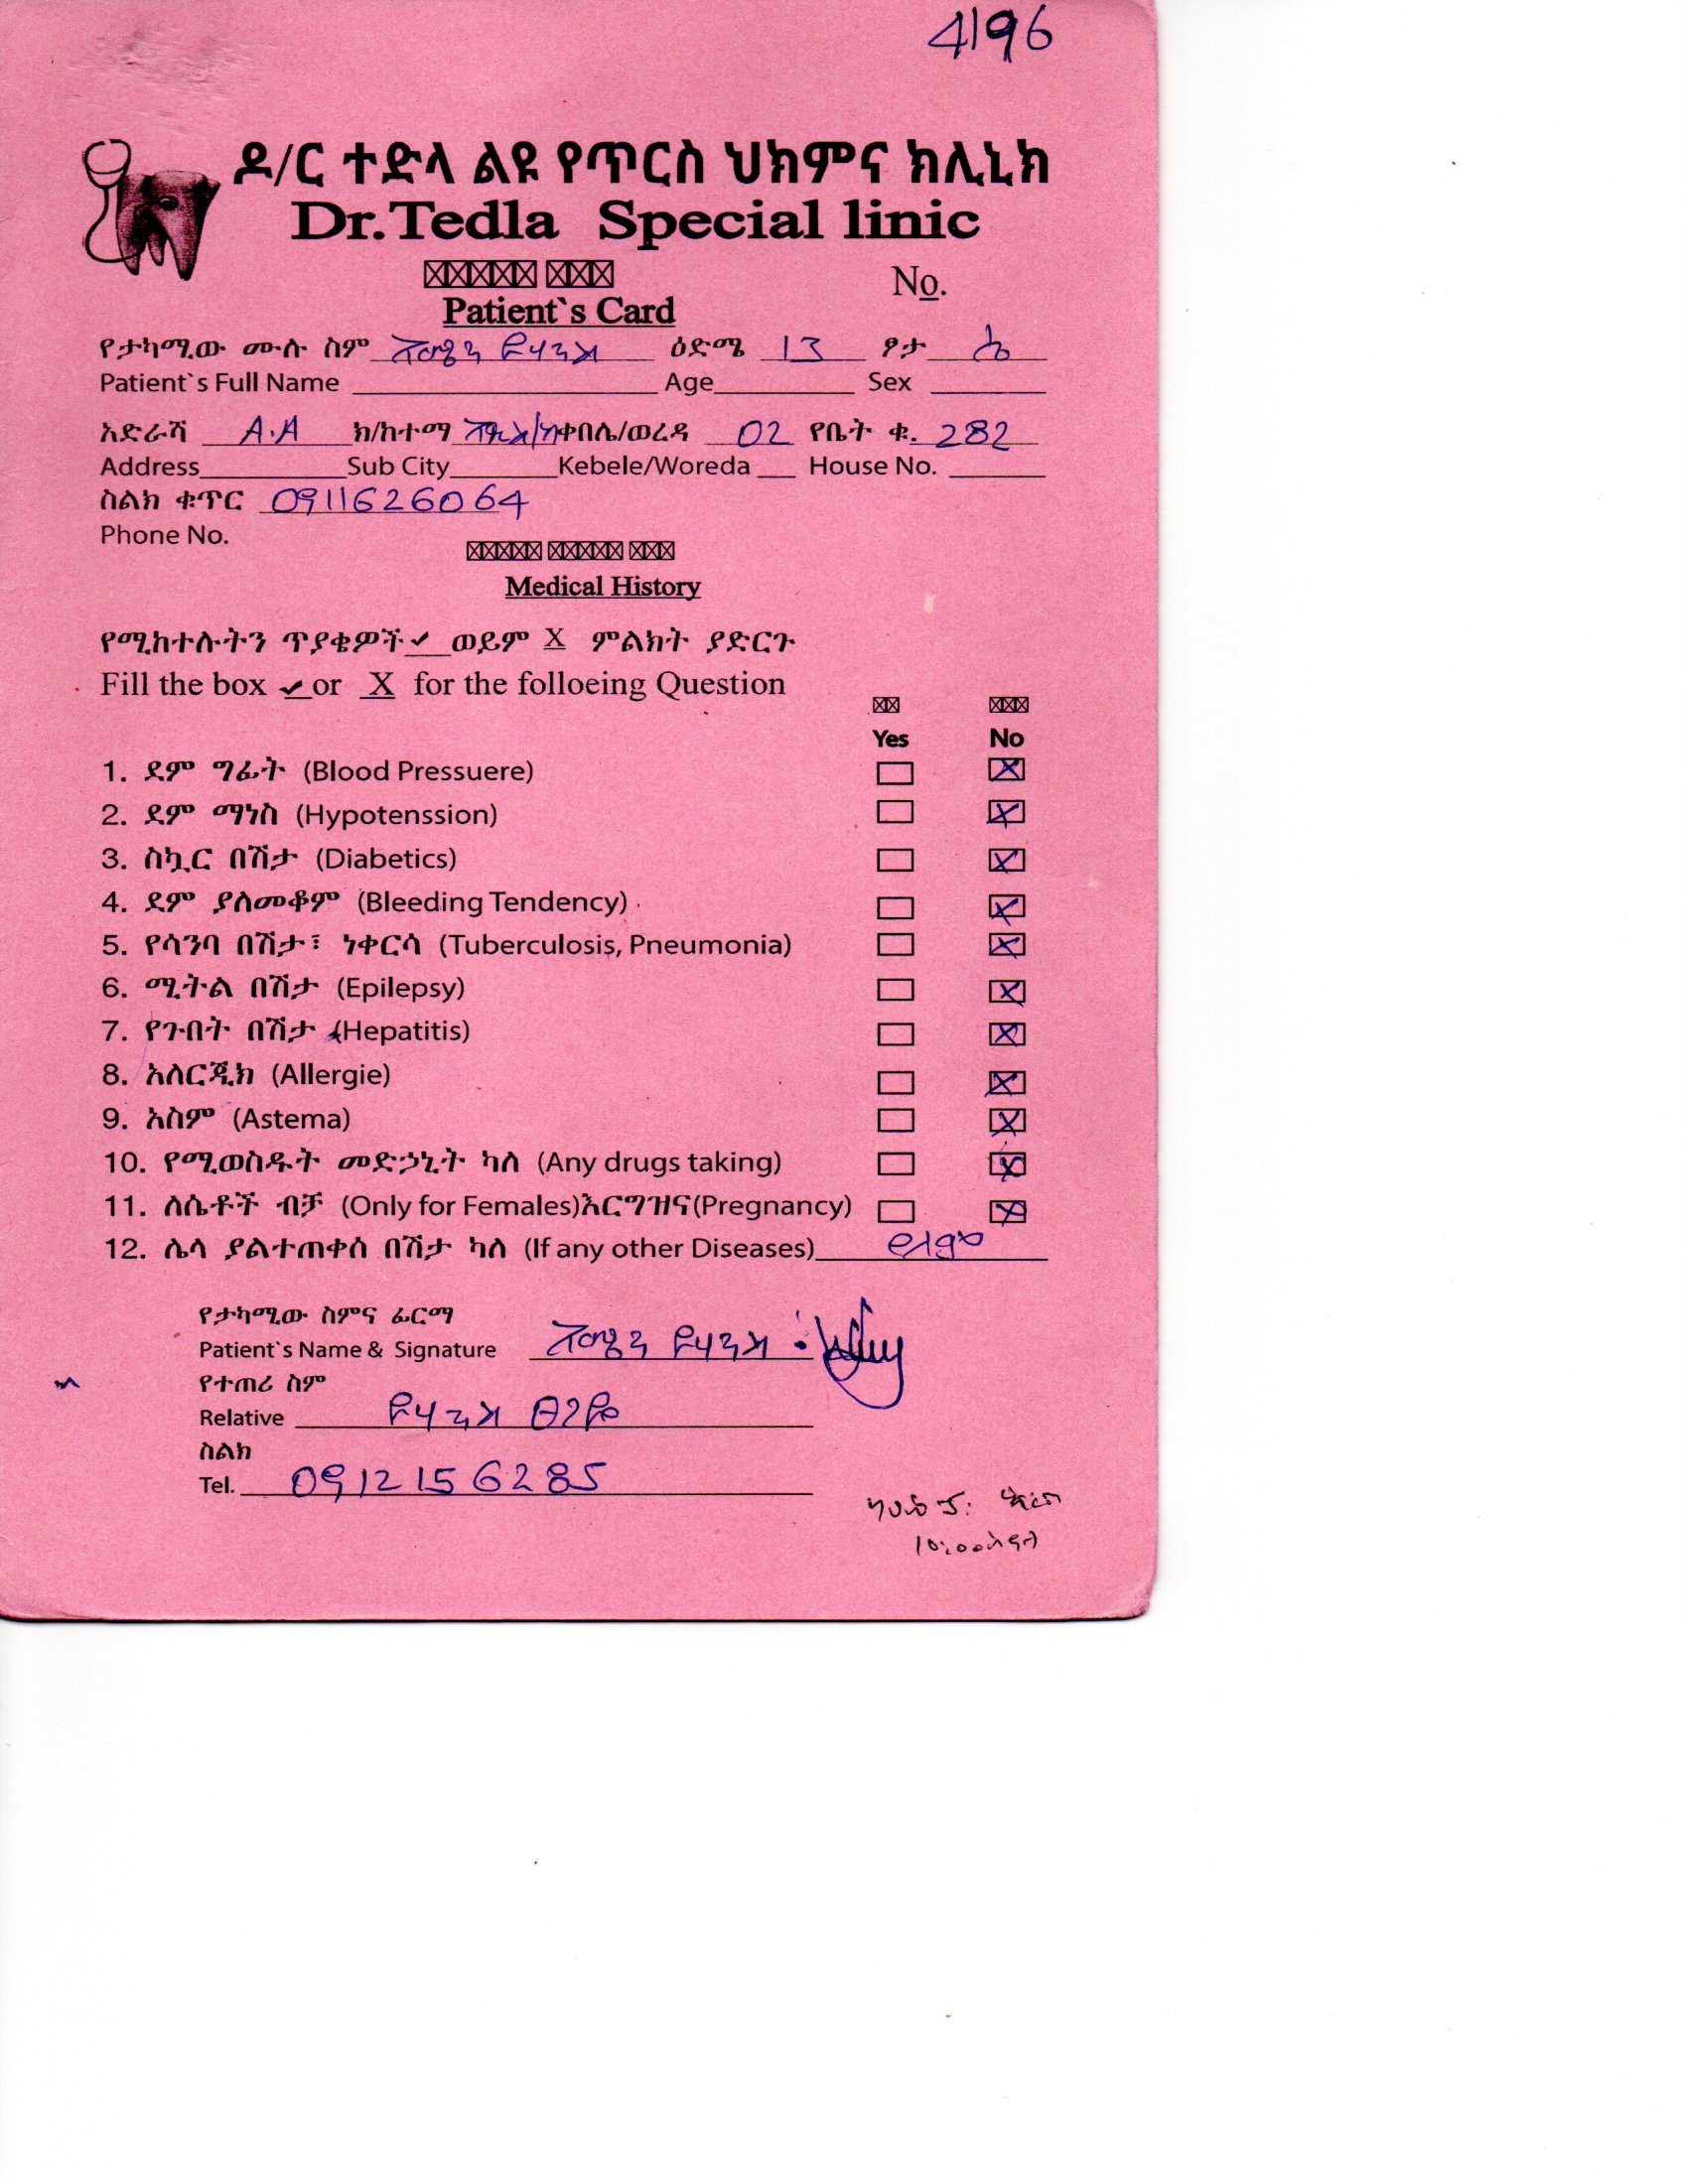 4196
ዶ/ር ተድላ ልዩ የጥርስ ህክምና ክሊኒክ
Dr.Tedla Special linic
No.
Patient`s Card
የታካሚው ሙሉ ስም ዕድሜ 13 ፆታ
Patient`s Full Name Age Sex
አድራሻ A.A ክ/ከተማ ቀበሌ/ወረዳ 02 የቤት ቁ. 282
Address Sub City Kebele/Woreda House No.
ስልክ ቁጥር 0911626064
Phone No.
Medical History
የሚከተሉትን ጥያቄዎች ✔ ወይም X ምልክት ያድርጉ
Fill the box ✔ or X for the folloeing Question
Yes No
1. ደም ግፊት (Blood Pressuere)
2. ደም ማነስ (Hypotenssion)
3. ስኳር በሽታ (Diabetics)
4. ደም ያለመቆም (Bleeding Tendency)
5. የሳንባ በሽታ፣ ነቀርሳ (Tuberculosis, Pneumonia)
6. ሚትል በሽታ (Epilepsy)
7. የጉበት በሽታ (Hepatitis)
8. አለርጂክ (Allergie)
9. አስም (Astema)
10. የሚወስዱት መድኃኒት ካለ (Any drugs taking)
11. ለሴቶች ብቻ (Only for Females)እርግዝና(Pregnancy)
12. ሌላ ያልተጠቀሰ በሽታ ካለ (If any other Diseases) የለም
የታካሚው ስምና ፊርማ
Patient`s Name & Signature
የተጠሪ ስም
Relative
ስልክ
Tel. 0912156285